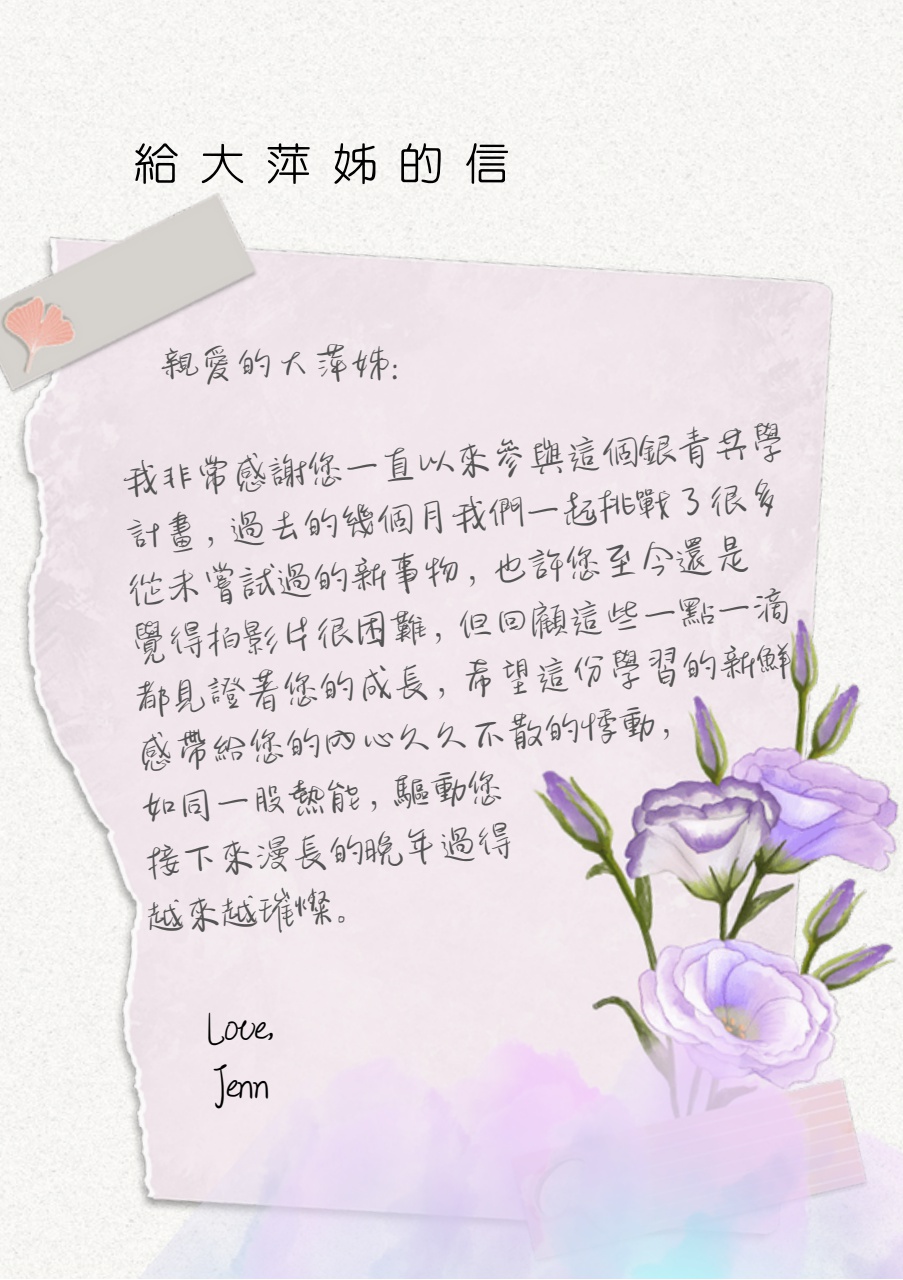 給大萍姊的信
親愛的大萍姊:
我非常感謝您一直以來參與這個銀青共學
計畫,過去的幾個月我們一起挑戰了很多
從未嘗試過的新事物,也許您至今還是
覺得拍影片很困難,但回顧這些一點一滴
都見證著您的成長,希望這份學習的新鮮
感帶給您的內心久久不散的悸動,
如同一股熱能,驅動您
接下來漫長的晚年過得
越來越璀燦。
Love,
Jenn